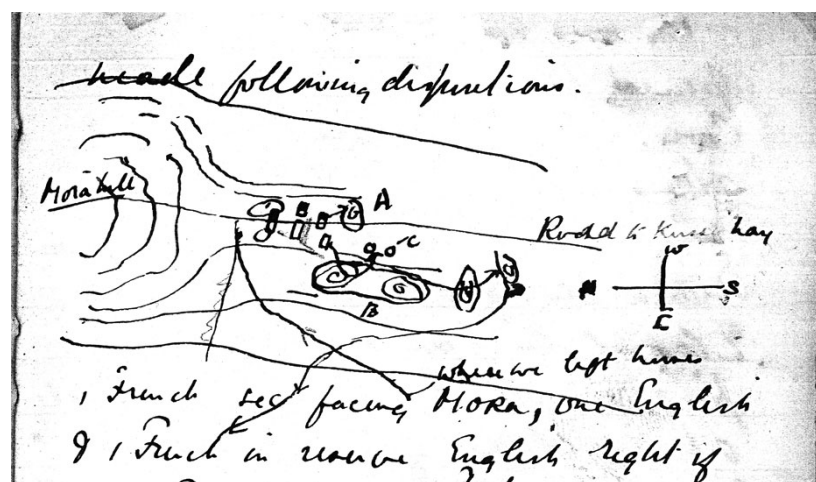 made following dispositions.
Mora hill
A
B
Road to Kusseri hay
C
B
W
N S
E
where we left horses
1 French sect facing MORA, one English
& 1 French in reserve English right if